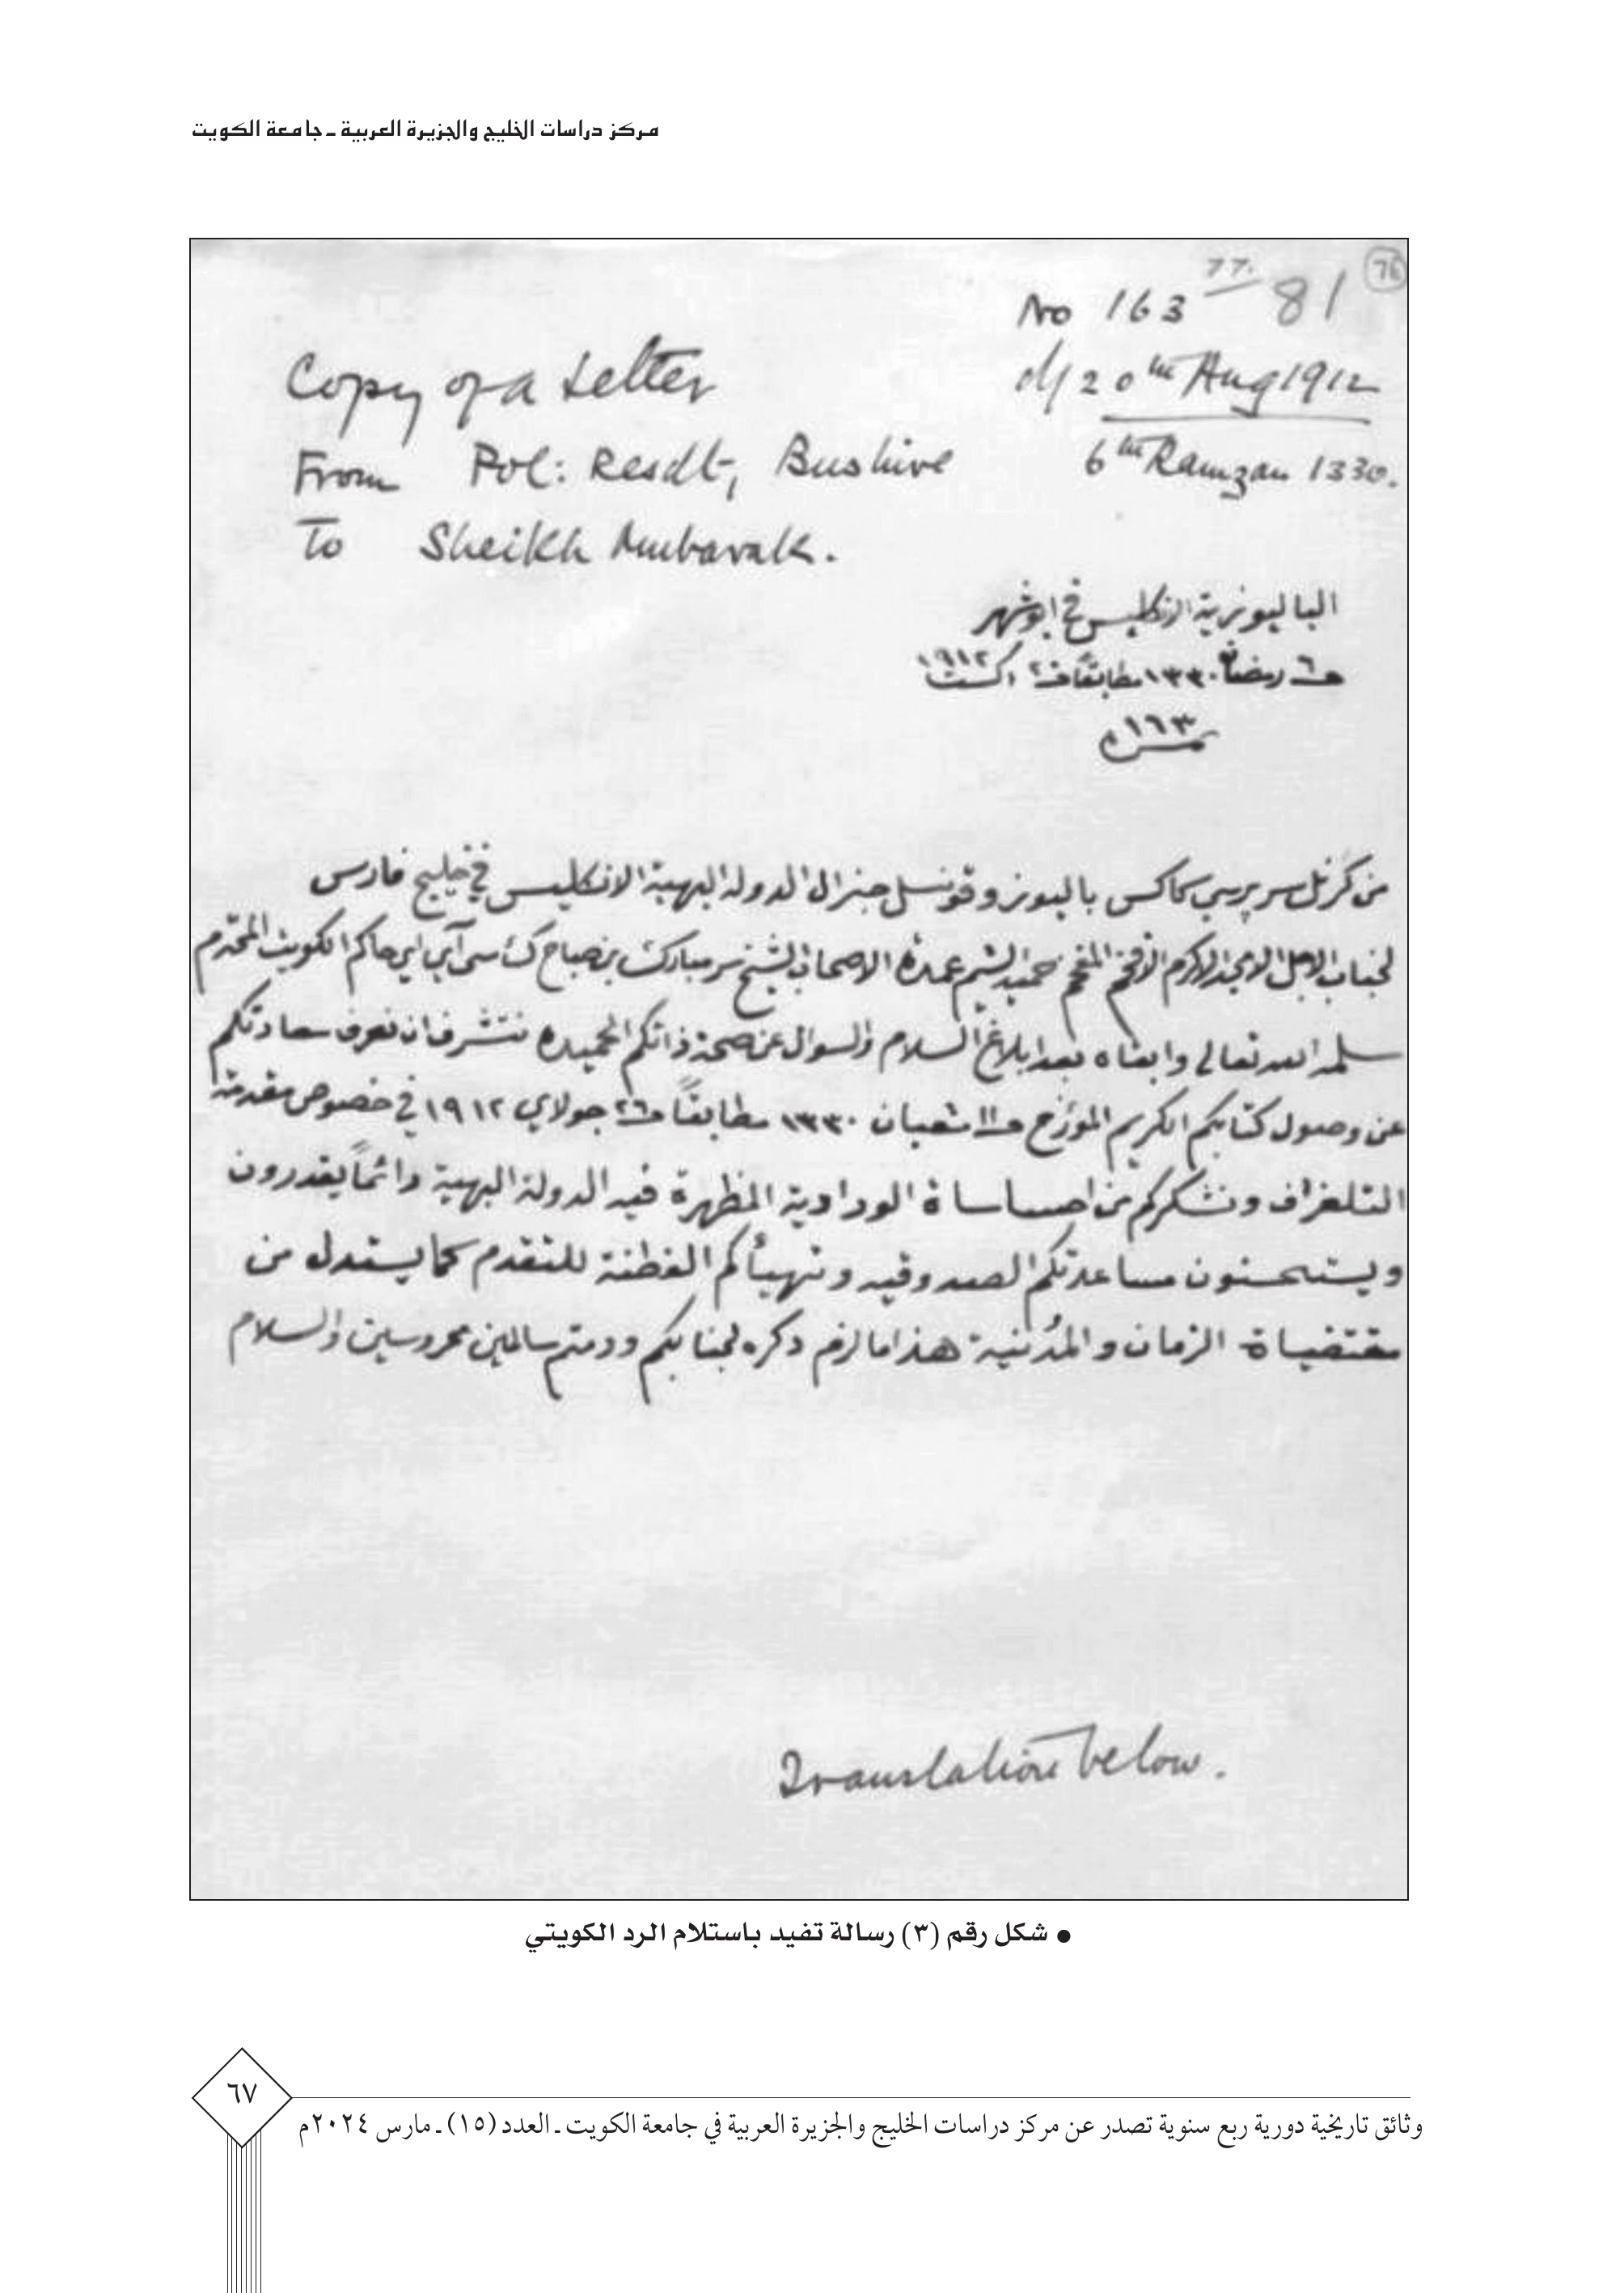 مركز دراسات الخليج والجزيرة العربية ـ جامعة الكويت
76
77.
No 163 81
d/ 20th Aug 1912
6th Ramzan 1330.
Copy of a Letter
From Pol: Resdt, Bushire
To Sheikh Mubarak.
الباليوزية الانكليس في ابوشهر
٦ رمضان ١٣٣٠ مطابقاً ٢٠ اكست ١٩١٢
١٦٣
من كرنل سر پرسي كاكس باليوز وقونسل جنرال الدولة البهية الانكليس في خليج فارس
لجناب الاجل الامجد الاكرم الافخم المفخم حميد الشيم عمدة الاصحاب الشيخ سر مبارك بن صباح ك سي آي اي حاكم الكويت المحترم
سلمه الله تعالى وابقاه بعد ابلاغ السلام والسوال عن صحة ذاتكم الحميده نتشرف ان نعرف سعادتكم
عن وصول كتابكم الكريم المؤرخ ١١ شعبان ١٣٣٠ مطابقاً ٢٦ جولاي ١٩١٢ في خصوص مقدمة
التلغراف ونشكركم من احساساة الودادية المظهرة فيه الدولة البهية دائماً يقدرون
ويستحسنون مساعدتكم الصدوقيه وتهيأكم الفطنة للتقدم كما يستدل من
مقتضياة الزمان والمدنية هذا ما لزم ذكره لجنابكم ودمتم سالمين محروسين والسلام
Translation below.
● شكل رقم (٣) رسالة تفيد باستلام الرد الكويتي
٦٧
وثائق تاريخية دورية ربع سنوية تصدر عن مركز دراسات الخليج والجزيرة العربية في جامعة الكويت ـ العدد (١٥) ـ مارس ٢٠٢٤م